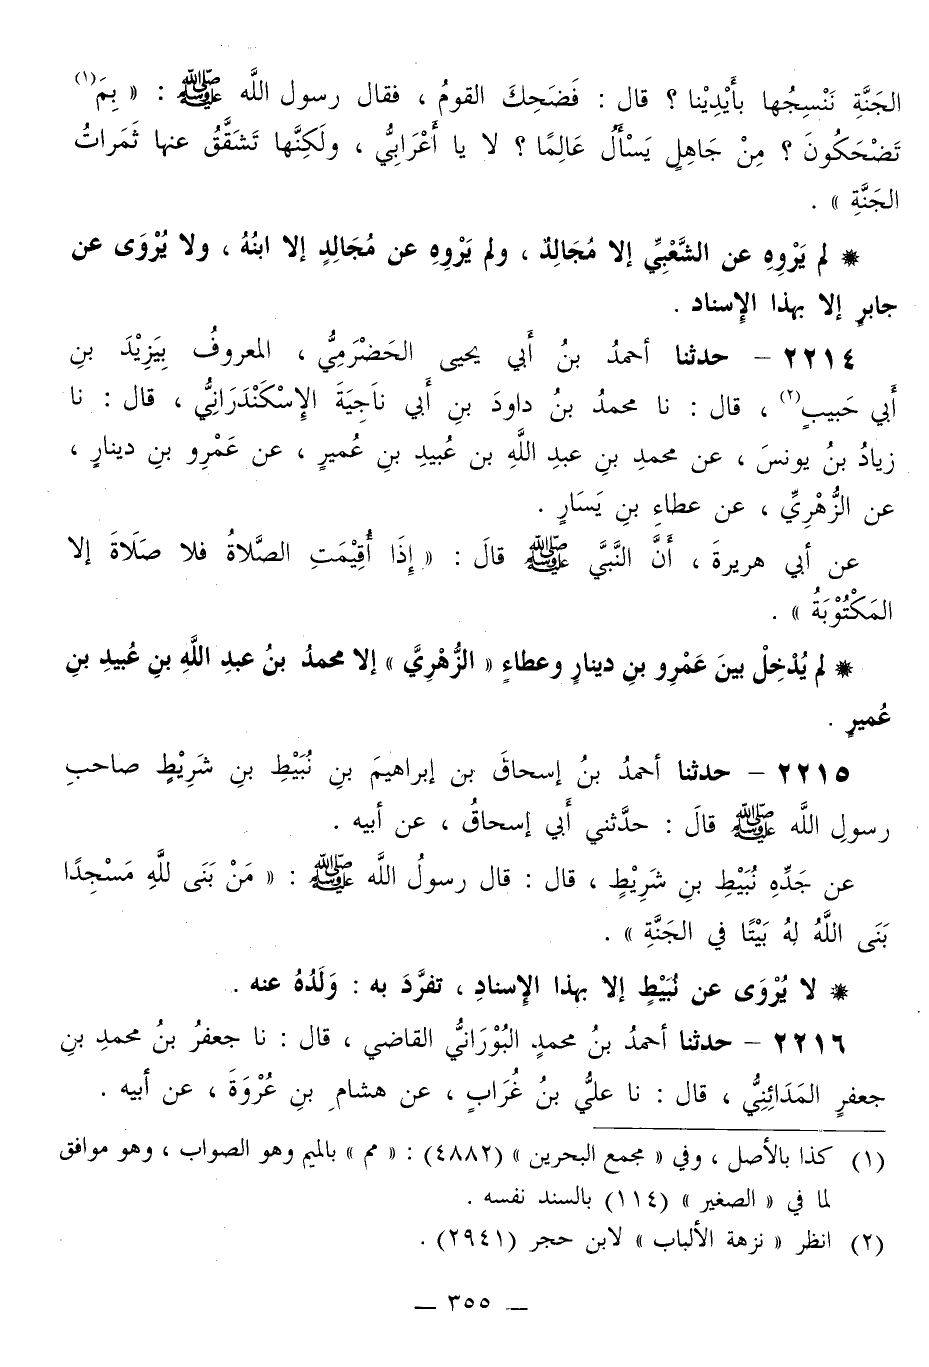 الجَنَّةِ نَنْسِجُها بأَيْدِيْنا ؟ قال : فَضَحِكَ القومُ ، فقال رسول اللَّه ﷺ : « بِمَ(١)
تَضْحَكُونَ ؟ مِنْ جَاهِلٍ يَسْأَلُ عَالِمًا ؟ لا يا أَعْرَابِيُّ ، ولَكِنَّها تَشَقَّقُ عنها ثَمَراتُ
الجَنَّةِ » .
* لم يَرْوِهِ عن الشَّعْبِيِّ إلا مُجَالِدٌ ، ولم يَرْوِهِ عن مُجَالِدٍ إلا ابنُهُ ، ولا يُرْوَى عن
جابرٍ إلا بهذا الإسناد .
٢٢١٤ – حدثنا أحمدُ بنُ أبي يحيى الحَضْرَمِيُّ ، المعروفُ بِيَزِيْدَ بنِ
أَبي حَبيبٍ(٢) ، قال : نا محمدُ بنُ داودَ بنِ أَبي نَاجِيَةَ الإِسْكَنْدَرَانِيُّ ، قال : نا
زيادُ بنُ يونسَ ، عن محمدِ بنِ عبدِ اللَّهِ بن عُبيدِ بنِ عُميرٍ ، عن عَمْرِو بنِ دينارٍ ،
عن الزُّهْرِيِّ ، عن عطاءِ بنِ يَسَارٍ .
عن أبي هريرةَ ، أَنَّ النَّبيَّ ﷺ قالَ : « إِذَا أُقِيْمَتِ الصَّلاةُ فلا صَلَاةَ إلا
المَكْتُوْبَةُ » .
* لم يُدْخِلْ بينَ عَمْرِو بنِ دينارٍ وعطاءٍ « الزُّهْرِيَّ » إلا محمدُ بنُ عبدِ اللَّهِ بنِ عُبيدِ بنِ
عُميرٍ .
٢٢١٥ – حدثنا أحمدُ بنُ إسحاقَ بن إبراهيمَ بنِ نُبَيْطِ بنِ شَرِيْطٍ صاحبِ
رسولِ اللَّه ﷺ قالَ : حدَّثني أَبي إسحاقُ ، عن أبيه .
عن جَدِّهِ نُبَيْطِ بنِ شَرِيْطٍ ، قال : قال رسولُ اللَّه ﷺ : « مَنْ بَنَى للَّهِ مَسْجِدًا
بَنَى اللَّهُ لهُ بَيْتًا في الجَنَّةِ » .
* لا يُرْوَى عن نُبَيْطٍ إلا بهذا الإسنادِ ، تفرَّدَ به : وَلَدُهُ عنه .
٢٢١٦ – حدثنا أحمدُ بنُ محمدٍ البُوْرَانيُّ القاضي ، قال : نا جعفرُ بنُ محمدِ بنِ
جعفرٍ المَدَائِنِيُّ ، قال : نا عليُّ بنُ غُرَابٍ ، عن هشامِ بنِ عُرْوَةَ ، عن أبيه .
(١) كذا بالأصل ، وفي « مجمع البحرين » (٤٨٨٢) : « مم » بالميم وهو الصواب ، وهو موافق
لما في « الصغير » (١١٤) بالسند نفسه .
(٢) انظر « نزهة الألباب » لابن حجر (٢٩٤١) .
— ٣٥٥ —